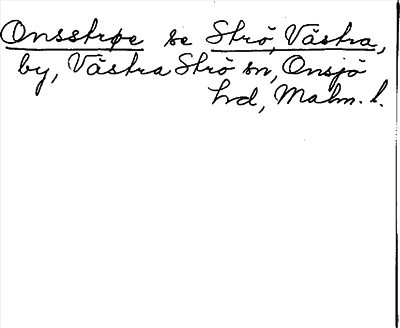 Onsstrøe se Strö, Västra,
by, Västra Strö sn, Onsjö
hd, Malm. l.